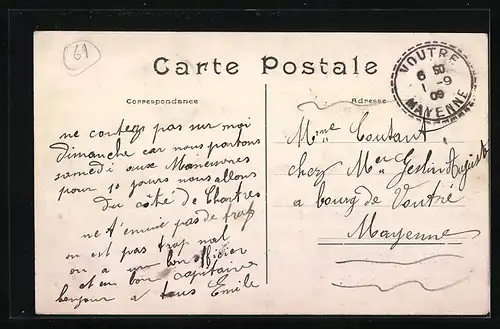 61
Carte Postale
Correspondance
Adresse
VOUTRÉ
6 30
1 -9
09
MAYENNE
ne comptez pas sur moi
dimanche car nous partons
samedi aux Manœuvres
pour 10 jours nous allons
du côté de Chartres
ne t'ennuie pas de trop
on est pas trop mal
on a un bon officier
et un bon capitaine
bonjour a tous Emile
Mme Coutant
chez Mr Geslin Auguste
a bourg de Voutré
Mayenne